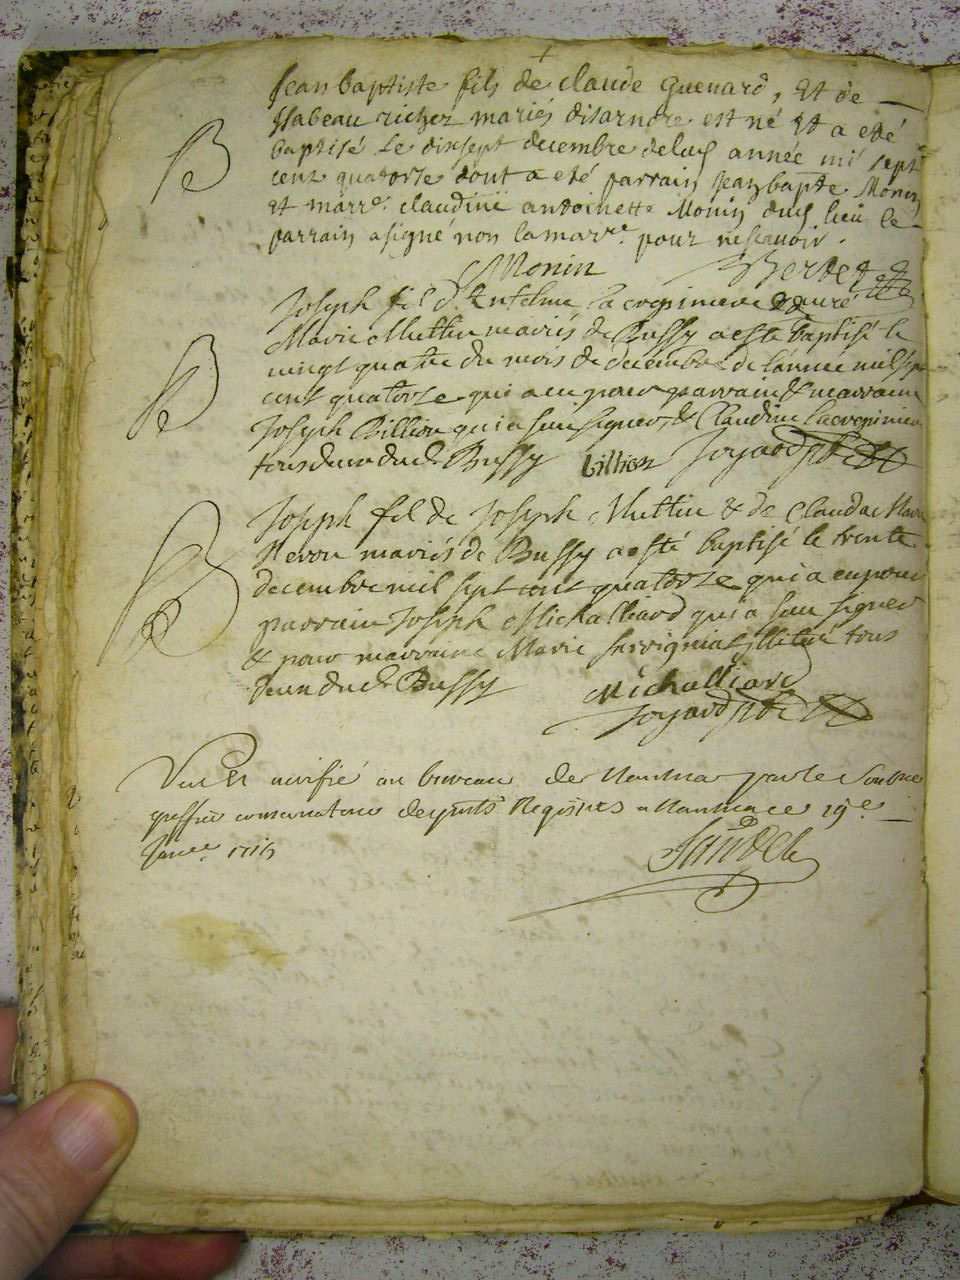 Jean baptiste fils de claude Guenard, Et de
Isabeau richer mariés disarnore est né Et a eté
B baptisé Le dixsept decembre delad année mil sept
cent quatorse dont a eté parrain Jean bapte Monin
et marre. claudine antoinette Monin dud lieu le
parrain a signé non la marre. pour ne scavoir.
Monin
Joseph fil d'Entelme Lacropiniere
Marie Muttin mariés de Bussy a esté baptisé le
B vingt quatre du mois de decembre de l'année mil sept
cent quatorze qui a eu pour parrain & marraine
Joseph Billion qui a sceu signer, & Claudine Lacropiniere
tous deux dud Bussy billion Joyard
Joseph fil de Joseph Muttin & de Claudae Marie
mariés de Bussy a esté baptisé le trente
B decembre mil sept cent quatorze qui a eu pour
parrain Joseph Michalliard qui a sceu signer
& pour marraine Marie tous
deux dud Bussy Michalliard
Joyard
Veu Et verifié au bureau de Nantua par le Soubne
greffier conservateur desd Registres a Nantua ce 19e.
Janer. 1715